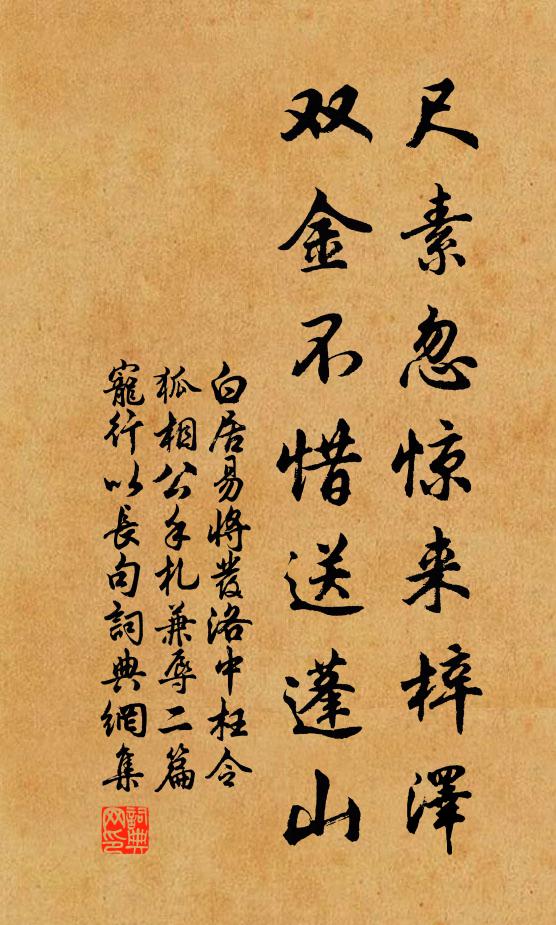 尺素忽惊来梓澤
双金不惜送蓬山
白居易將發洛中枉令
狐相公手札兼辱二篇
寵行以長句詞典網集
詞典网印